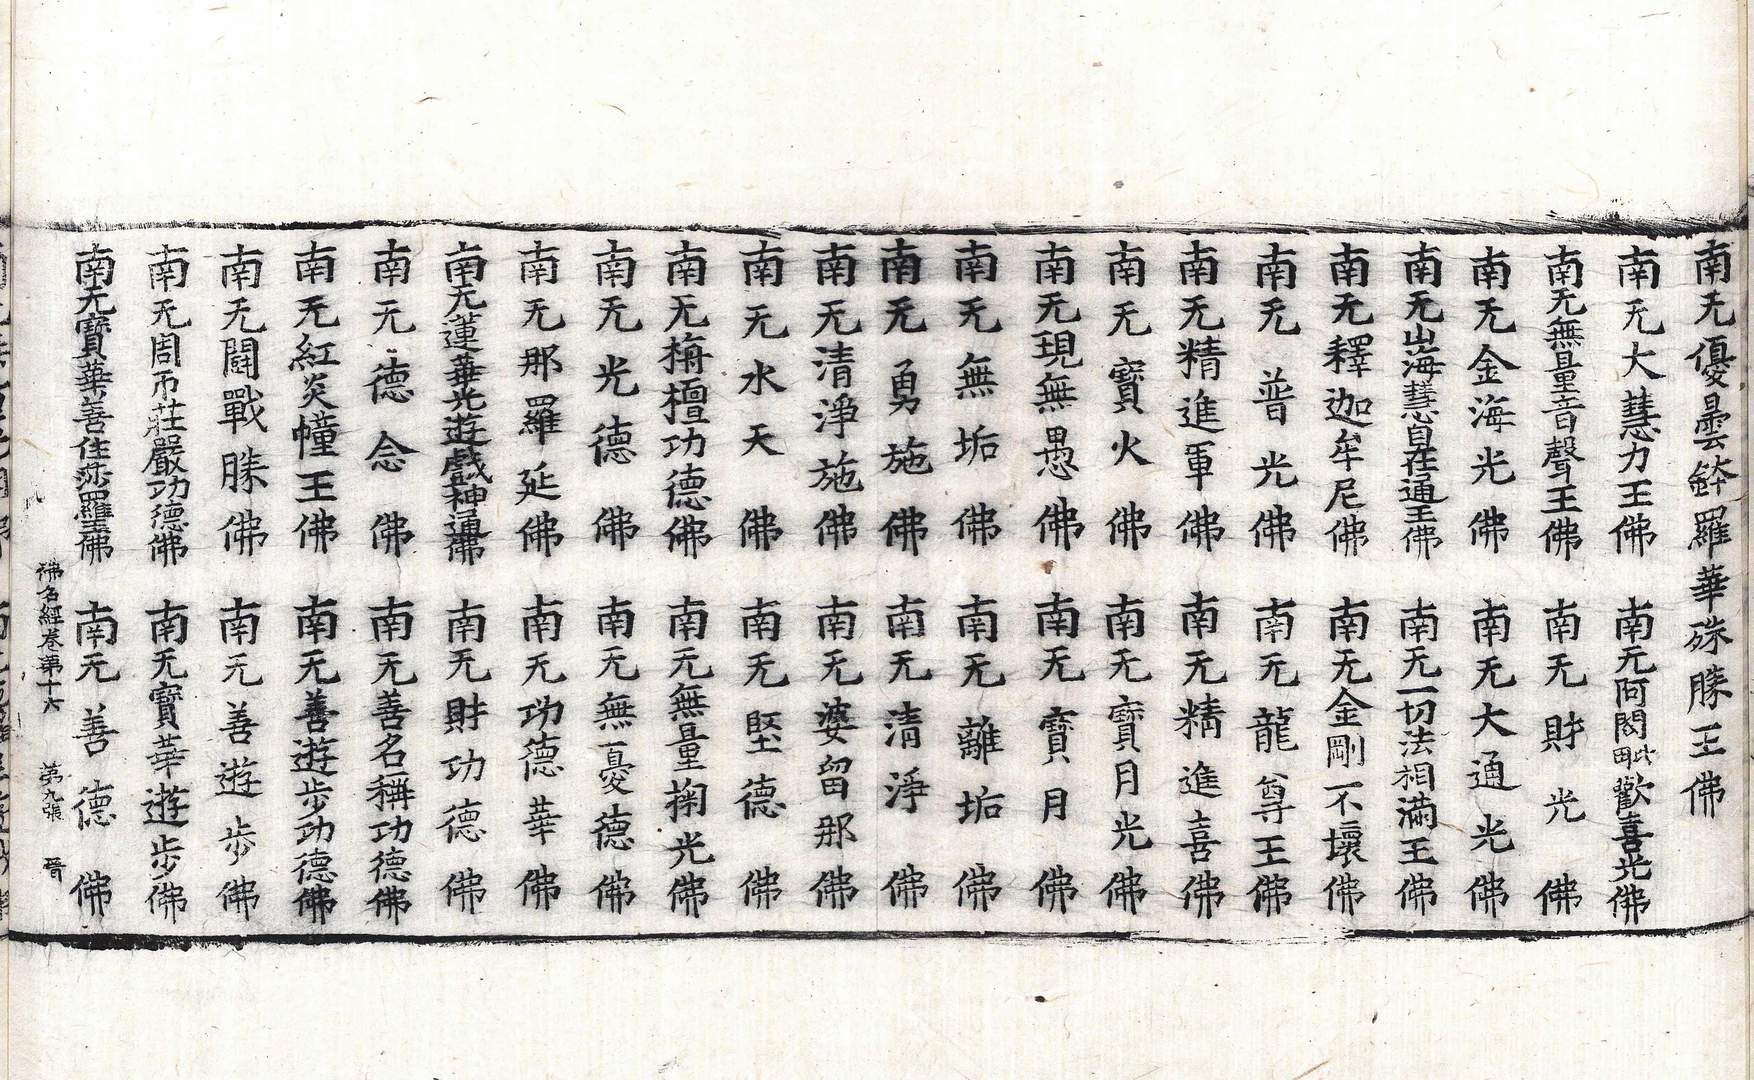 南无優曇鉢羅華殊勝王佛
南无大慧力王佛　南无阿閦毗歡喜光佛
南无無量音聲王佛　南无財光佛
南无金海光佛　南无大通光佛
南无山海慧自在通王佛　南无一切法相滿王佛
南无釋迦牟尼佛　南无金剛不壞佛
南无普光佛　南无龍尊王佛
南无精進軍佛　南无精進喜佛
南无寶火佛　南无寶月光佛
南无現無愚佛　南无寶月佛
南无無垢佛　南无離垢佛
南无勇施佛　南无清淨佛
南无清淨施佛　南无婆留那佛
南无水天佛　南无堅德佛
南无栴檀功德佛　南无無量掬光佛
南无光德佛　南无無憂德佛
南无那羅延佛　南无功德華佛
南无蓮華光遊戲神通佛　南无財功德佛
南无德念佛　南无善名稱功德佛
南无紅炎幢王佛　南无善遊步功德佛
南无鬪戰勝佛　南无善遊步佛
南无周帀莊嚴功德佛　南无寶華遊步佛
南无寶華善住娑羅王佛　南无善德佛
佛名經卷第十六　第九張　晉